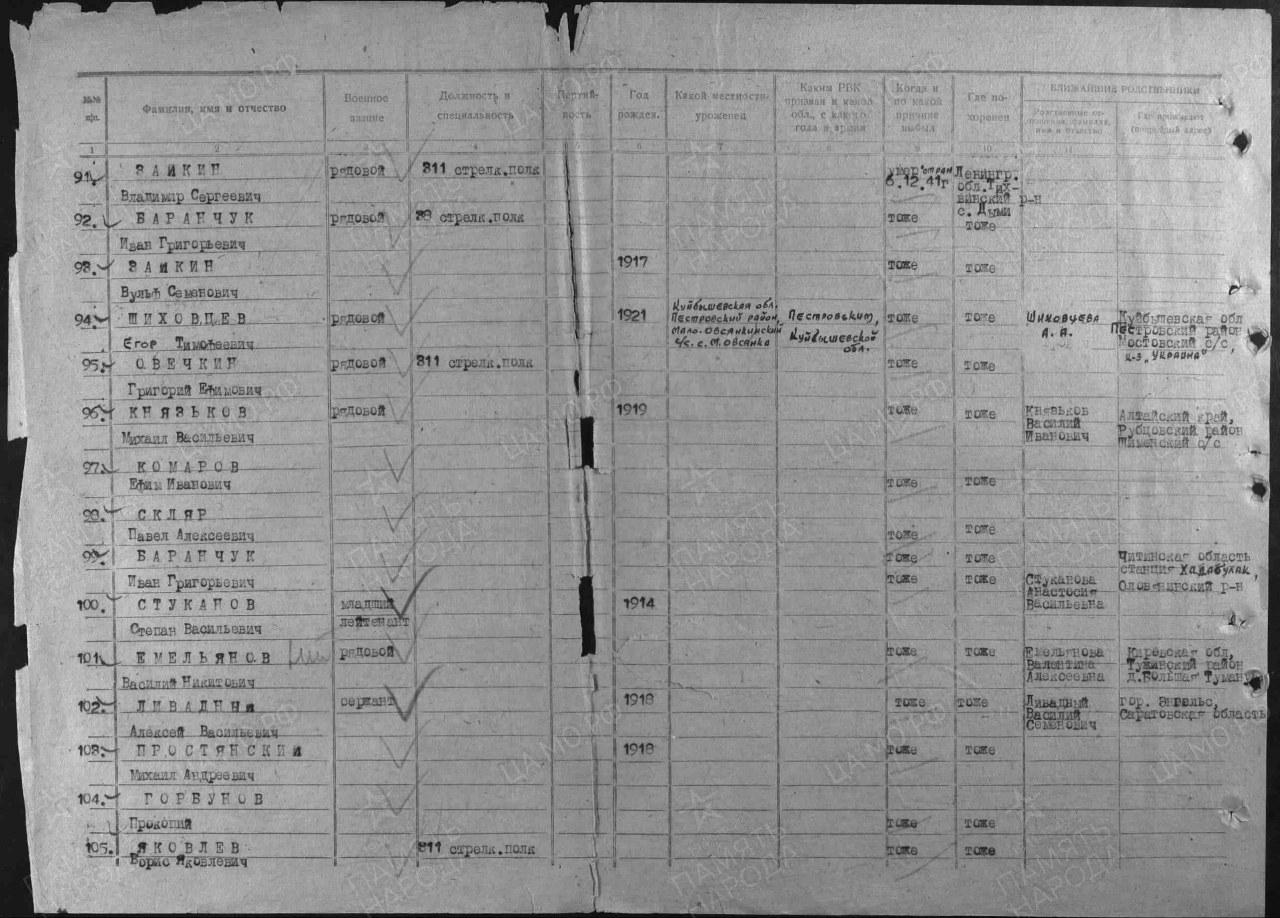 №№ п/п.
Фамилия, имя и отчество
Военное звание
Должность и специальность
Партийность
Год рожден.
Какой местности уроженец
Каким РВК призван и какой обл., с какого года в армии
Когда и по какой причине выбыл
Где похоронен
БЛИЖАЙШИЕ РОДСТВЕННИКИ
1 2 4 7 10 11
91. ЗАИКИН рядовой 311 стрелк.полк умер от ран Ленингр.
6.12.41г обл.Тих-
Владимир Сергеевич винский р-н
с. Дыми
92. БАРАНЧУК рядовой 38 стрелк.полк тоже тоже
Иван Григорьевич
93. ЗАИКИН 1917 тоже тоже
Вульф Семенович
94. ШИХОВЦЕВ рядовой 1921 Куйбышевская обл. Пестровским, тоже тоже Шиховцева Куйбышевская обл
Пестровский район, Куйбышевской А. А. Пестровский район
Егор Тимофеевич Мало-Овсянкинский обл. Мостовский с/с,
с/с. с. М. Овсянка к-з "Украина"
95. ОВЕЧКИН рядовой 311 стрелк.полк тоже тоже
Григорий Ефимович
96. КНЯЗЬКОВ рядовой 1919 тоже тоже Князьков Алтайский край,
Василий Рубцовский район
Михаил Васильевич Иванович с/с
97. КОМАРОВ
Ефим Иванович тоже тоже
98. СКЛЯР
Павел Алексеевич тоже тоже
99. БАРАНЧУК тоже тоже Читинская область
станция Хадабулак,
Иван Григорьевич тоже тоже Стуканова Оловянинский р-н
Анастосия
100. СТУКАНОВ младший 1914 Васильевна
лейтенант
Степан Васильевич
101. ЕМЕЛЬЯНОВ рядовой тоже тоже Емельянова Кировская обл,
Валентина Тужинский район
Василий Никитович Алексеевна д.Большая
102. ЛИВАДНЫЙ сержант 1918 тоже тоже Ливадный гор. Энгельс,
Василий Саратовская область
Алексей Васильевич Семенович
103. ПРОСТЯНСКИЙ 1918 тоже тоже
Михаил Андреевич
104. ГОРБУНОВ
Прокопий тоже тоже
105. ЯКОВЛЕВ 311 стрелк.полк тоже тоже
Борис Яковлевич
ПАМЯТЬ НАРОДА
ЦАМО.РФ